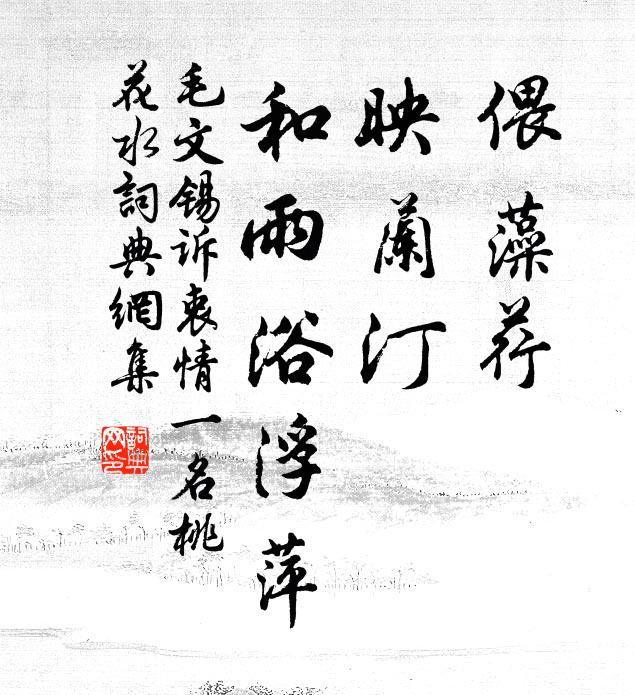 偎藻荇
映蘭汀
和雨浴浮萍
毛文锡诉衷情一名桃
花水詞典網集
詞典网印